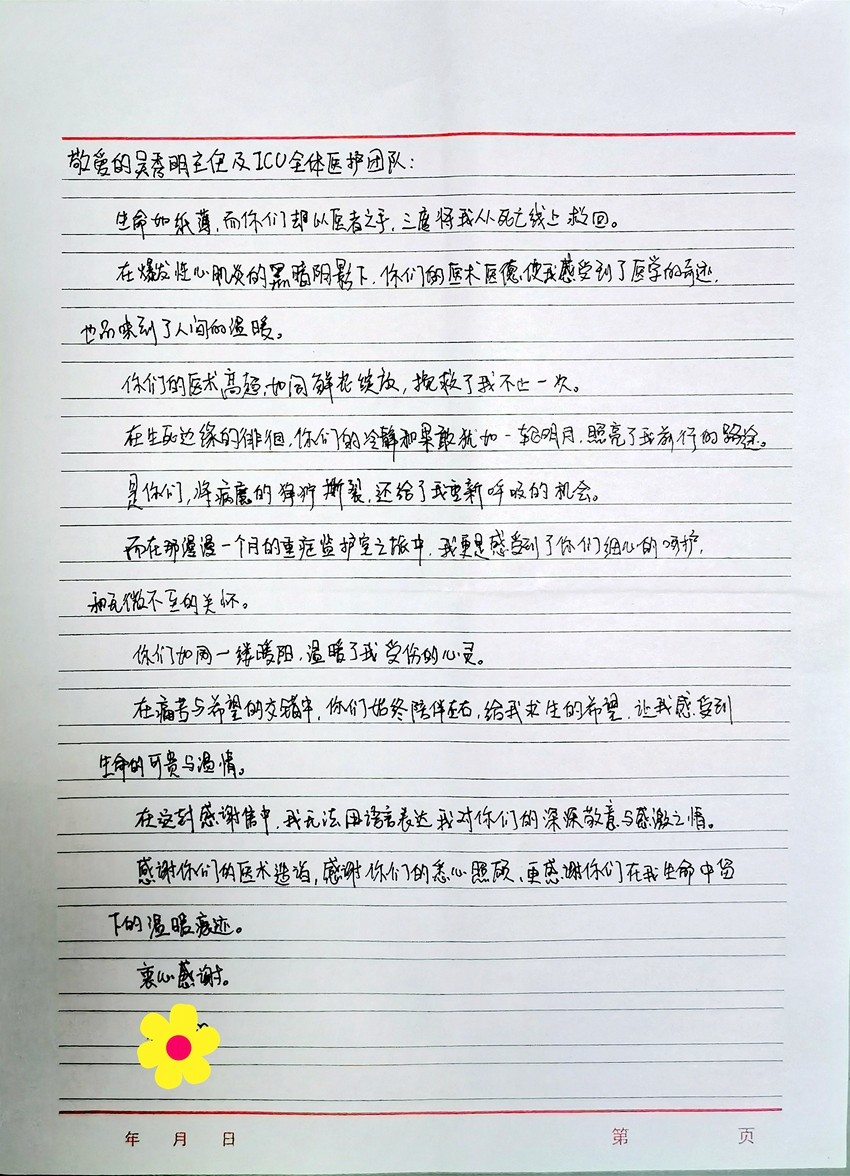 敬爱的吴秀明主任及ICU全体医护团队：
生命如纸薄，而你们却以医者之手，三度将我从死亡线上救回。
在爆发性心肌炎的黑暗阴影下，你们的医术医德，使我感受到了医学的奇迹，
也品味到了人间的温暖。
你们的医术高超，如同鲜花绽放，挽救了我不止一次。
在生死边缘的徘徊，你们的冷静和果敢犹如一轮明月，照亮了我前行的路途。
是你们，将病魔的狰狞撕裂，还给了我重新呼吸的机会。
而在那漫漫一个月的重症监护室之旅中，我更是感受到了你们细心的呵护，
和无微不至的关怀。
你们如同一缕暖阳，温暖了我受伤的心灵。
在痛苦与希望的交错中，你们始终陪伴左右，给我求生的希望，让我感受到
生命的可贵与温情。
在这封感谢信中，我无法用语言表达我对你们的深深敬意与感激之情。
感谢你们的医术造诣，感谢你们的悉心照顾，更感谢你们在我生命中留
下的温暖痕迹。
衷心感谢。
年 月 日 第 页